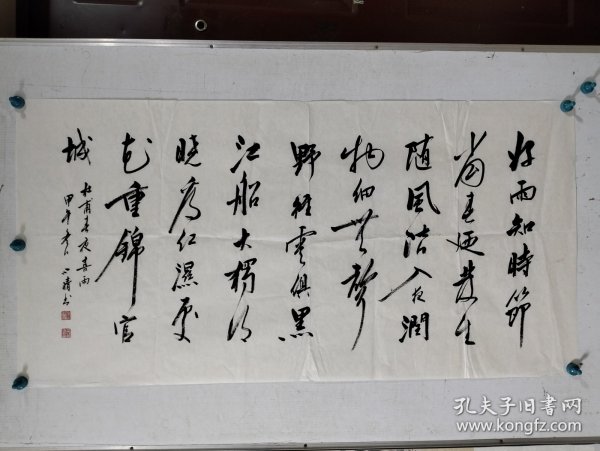 好雨知時節
當春迺發生
随風潜入夜潤
物细無聲
野径雲俱黑
江船火獨明
晓看红濕處
花重錦官
城
杜甫春夜喜雨
甲午
孔夫子旧书网
www.kongfz.com